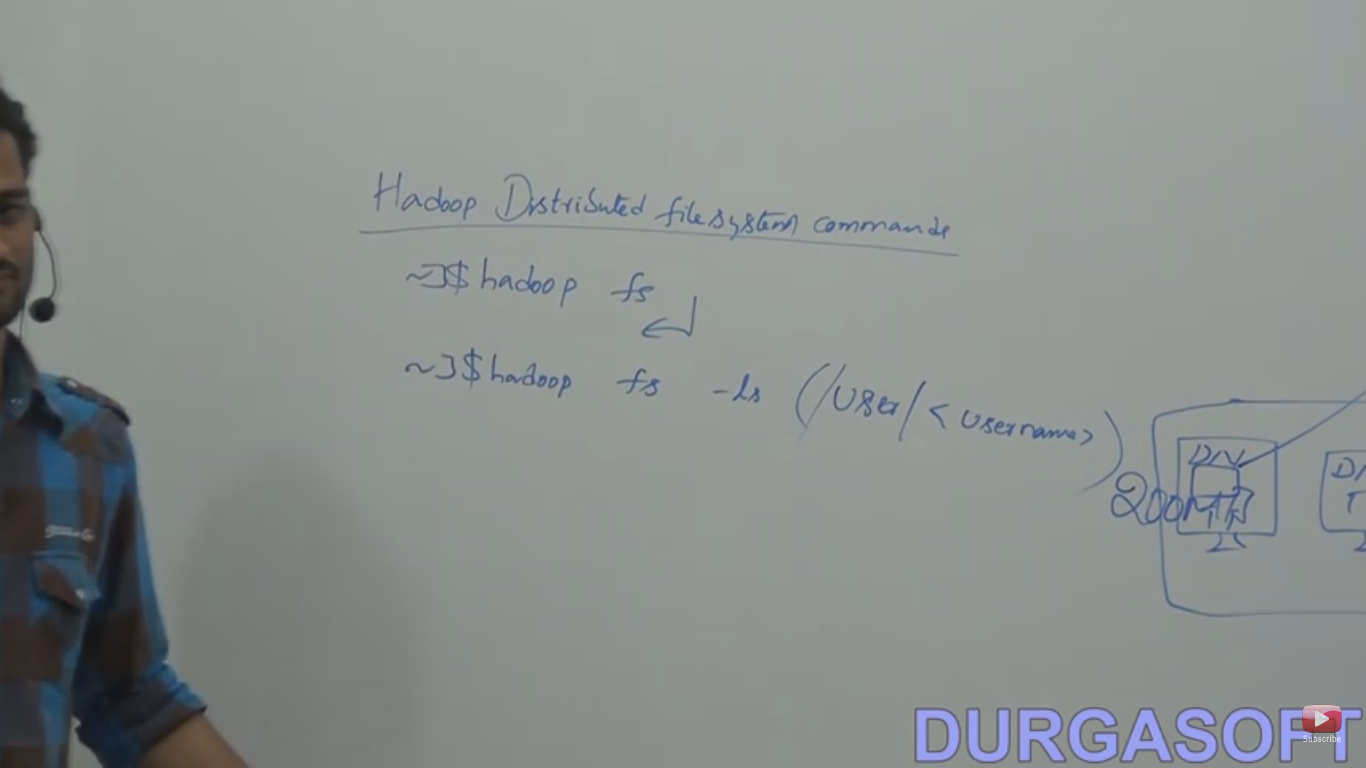 Hadoop Distributed filesystem commands
~]$ hadoop fs
~]$ hadoop fs -ls (/user/<username>)
200M
DURGASOFT
Subscribe